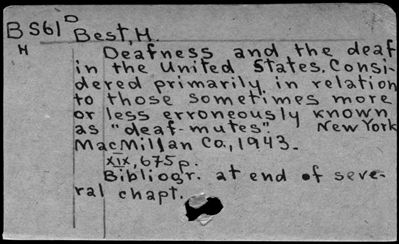 BS61 D Best, H.
H Deafness and the deaf
in the United States. Consi-
dered primarily in relation
to those sometimes more
or less erroneously known
as "deaf-mutes". New York
MacMillan Co., 1943.
XIX, 675 p.
Bibliogr. at end of seve-
ral chapt.